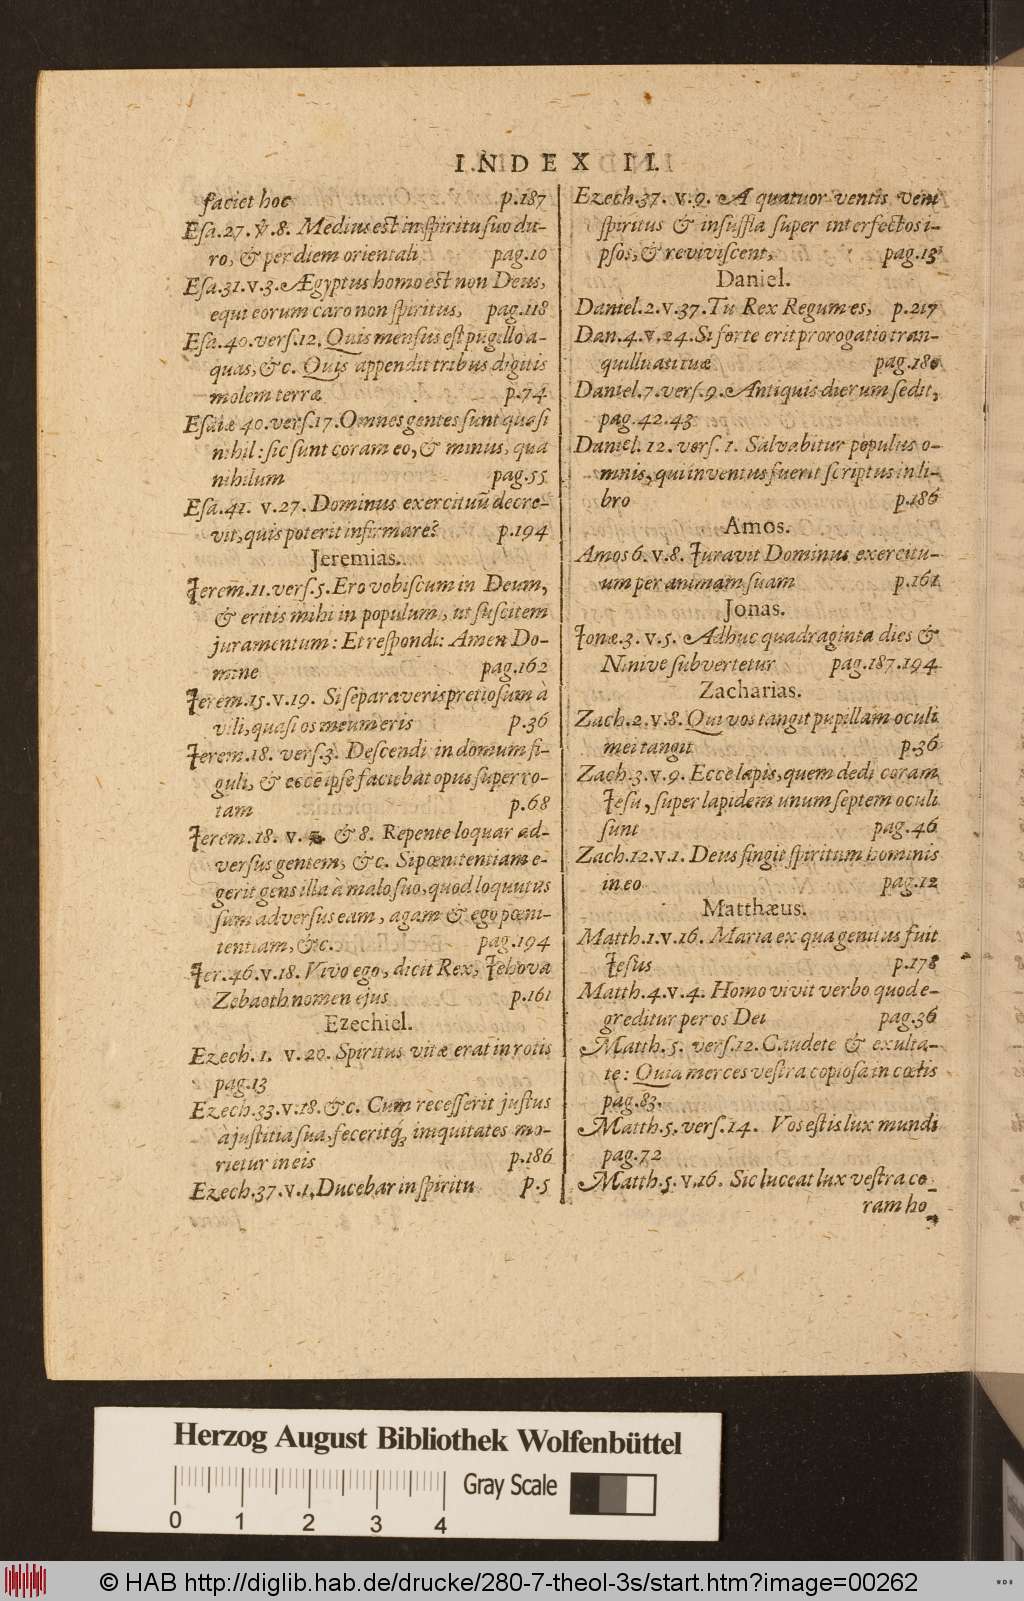 INDEX II.
faciet hoc p.187
Esa.27.v.8. Medius est in spiritu suo du-
ro, & per diem orientali pag.10
Esa.31.v.3. Ægyptus homo est non Deus,
equi eorum caro non spiritus, pag.118
Esa.40.vers.12. Quis mensus est pugillo a-
quas, &c. Quis appendit tribus digitis
molem terræ p.74
Esaiæ 40.vers.17. Omnes gentes sunt quasi
nihil: sic sunt coram eo, & minus, qua
nihilum pag.55
Esa.41. v.27. Dominus exercituũ decre-
vit, quis poterit infirmare? p.194
Jeremias.
Jerem.11.vers.5. Ero vobiscum in Deum,
& eritis mihi in populum, ut suscitem
juramentum: Et respondi: Amen Do-
mine pag.162
Jerem.15.v.19. Si separaveris pretiosum à
vili, quasi os meum eris p.36
Jerem.18. vers.3. Descendi in domum fi-
guli, & ecce ipse faciebat opus super ro-
tam p.68
Jerem.18. v. 7. & 8. Repente loquar ad-
versus gentem, &c. Si pœnitentiam e-
gerit gens illa à malo suo, quod loquutus
sum adversus eam, agam & ego pœni-
tentiam, &c. pag.194
Jer.46.v.18. Vivo ego, dicit Rex, Jehova
Zebaoth nomen ejus p.161
Ezechiel.
Ezech. 1. v.20. Spiritus vitæ erat in rotis
pag.13
Ezech.33.v.18.&c. Cum recesserit justus
à justitia sua, feceritq́; iniquitates mo-
rietur in eis p.186
Ezech.37.v.1. Ducebar in spiritu p.5
Ezech.37. v.9. A quatuor ventis veni
spiritus & insuffla super interfectos i-
psos, & reviviscent, pag.13
Daniel.
Daniel.2.v.37. Tu Rex Regum es, p.217
Dan.4.v.24. Si forte erit prorogatio tran-
quilluati tuæ pag.180
Daniel.7.vers.9. Antiquis dierum sedit,
pag.42.43
Daniel.12.vers.1. Salvabitur populus o-
mnis, qui inventus fuerit scriptus in li-
bro p.186
Amos.
Amos 6.v.8. Juravit Dominus exercitu-
um per animam suam p.161
Jonas.
Jonæ.3.v.5. Adhuc quadraginta dies &
Ninive subvertetur pag.187.194
Zacharias.
Zach.2.v.8. Qui vos tangit pupillam oculi
mei tangit p.36
Zach.3.v.9. Ecce lapis, quem dedi coram
Jesu, super lapidem unum septem oculi
sunt pag.46
Zach.12.v.1. Deus fingit spiritum hominis
in eo pag.12
Matthæus.
Matth.1.v.16. Maria ex qua genitus fuit
Jesus p.178
Matth.4.v.4. Homo vivit verbo quod e-
greditur per os Dei pag.36
Matth.5. vers.12. Gaudete & exulta-
te: Quia merces vestra copiosa in cœlis
pag.83.
Matth.5.vers.14. Vos estis lux mundi
pag.72
Matth.5.v.16. Sic luceat lux vestra co-
ram ho-
Herzog August Bibliothek Wolfenbüttel
Gray Scale
0 1 2 3 4
© HAB http://diglib.hab.de/drucke/280-7-theol-3s/start.htm?image=00262